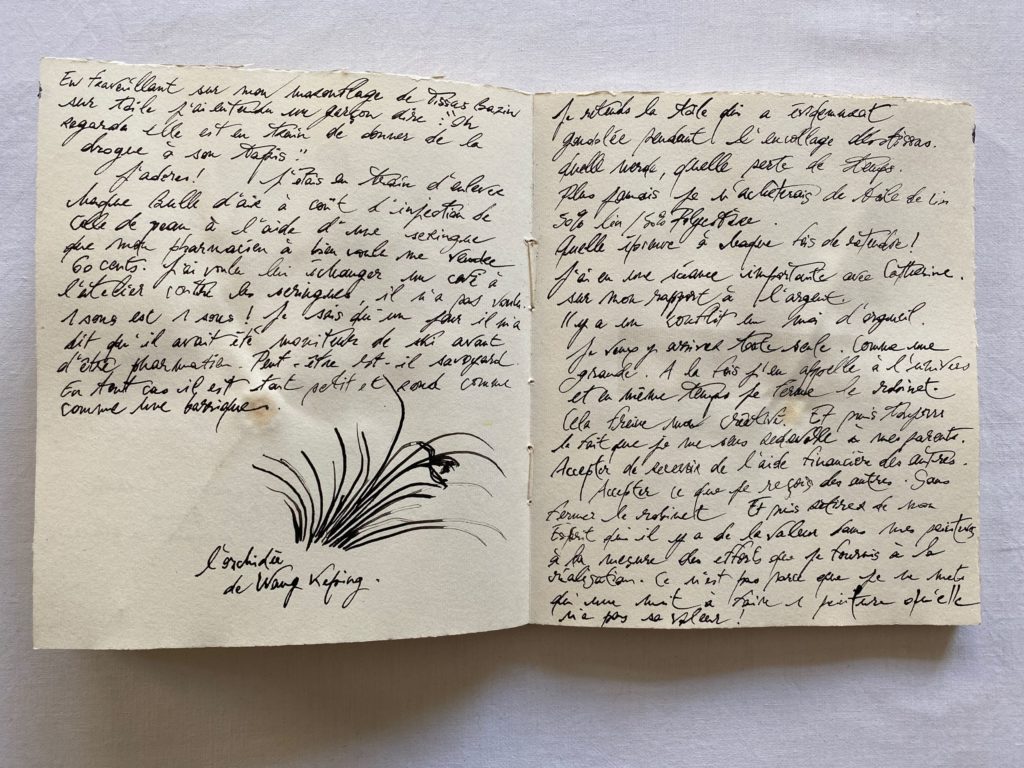 En travaillant sur mon marouflage de Tissas Bazin
sur toile j'ai entendu un garçon dire : "Oh
regarda elle est en train de donner de la
drogue à son tapis".
J'adores! J'étais en train d'enlever
chaque bulle d'air à coût d'injection de
colle de peau à l'aide d'une seringue
que mon pharmacien à bien voulu me vendre
60 cents. J'ai voulu lui échanger un café à
l'atelier contre les seringues, il n'a pas voulu.
1 sous est 1 sous ! Je sais qu'un jour il m'a
dit qu'il avait été moniteur de ski avant
d'être pharmacien. Peut-être est-il savoyard.
En tout cas il est tout petit et rond comme
comme une barrique.
l'orchidée
de Wang Keping.
Je retends la toile qui a évidemment
gondolée pendant l'encollage des tissas.
Quelle merde, quelle perte de temps.
Plus jamais je n'achèterais de toile de lin
50% lin / 50% Polyestère.
Quelle épreuve à chaque fois de retendre !
J'ai eu une séance importante avec Catherine.
sur mon rapport à l'argent.
Il y a un conflit en moi d'orgueil.
Je veux y arriver toute seule. Comme une
grande. A la fois j'en appelle à l'univers
et en même temps je ferme le robinet.
Cela freine ma créativité. Et puis toujours
le fait que je me sens redevable à mes parents.
Accepter de recevoir de l'aide financière des autres.
Accepter ce que je reçois des autres. Sans
fermer le robinet. Et puis retirer de mon
Esprit qu'il y a de la valeur dans mes peintures
à la mesure des efforts que je fournis à la
réalisation. Ce n'est pas parce que je ne mets
qu'une nuit à faire 1 peinture qu'elle
n'a pas sa valeur !